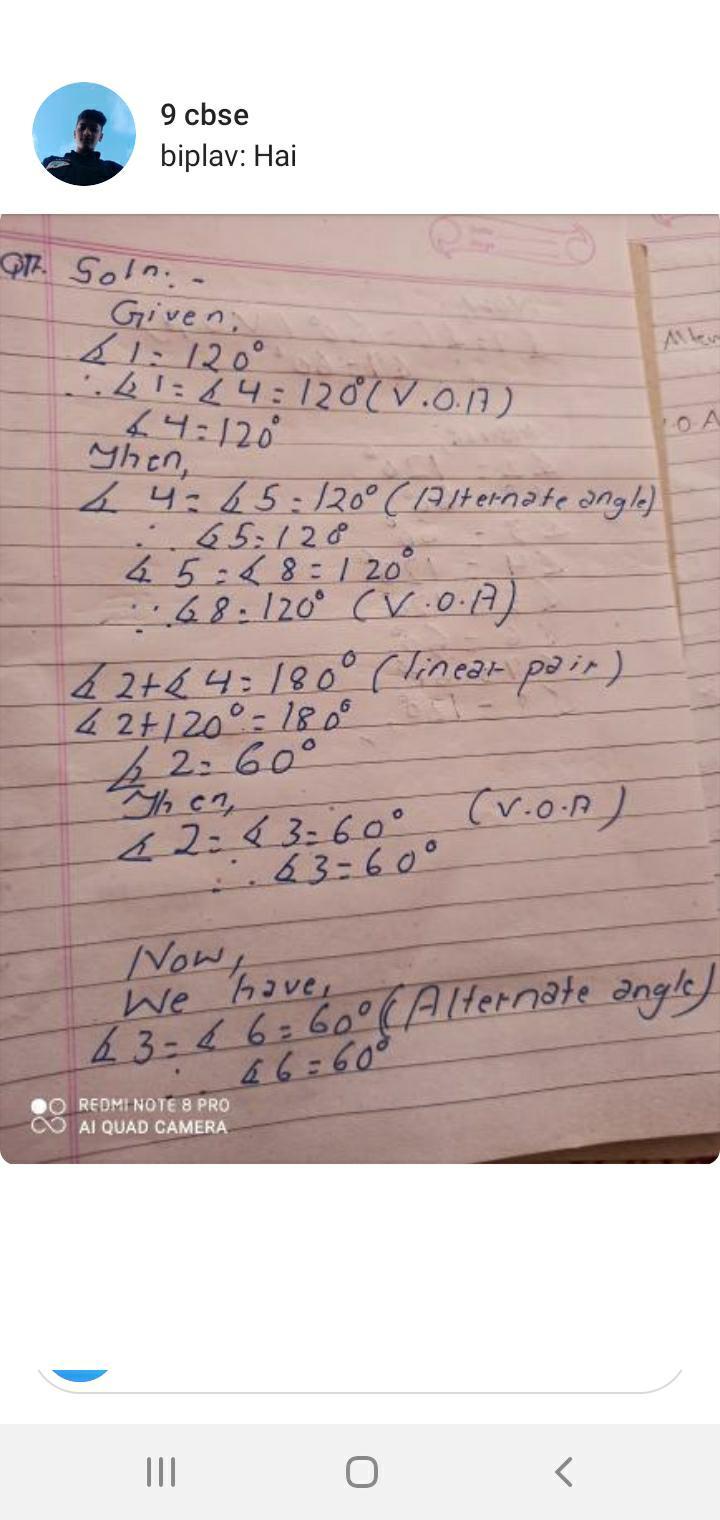 9 cbse
biplav: Hai
Q17. Soln:-
Given,
∡1 = 120°
∴ ∡1 = ∡4 = 120° (V.O.A)
∡4 = 120°
Then,
∡4 = ∡5 = 120° (Alternate angle)
∴ ∡5 = 120
∡5 = ∡8 = 120°
∴ ∡8 = 120° (V.O.A)
∡2 + ∡4 = 180° (linear pair)
∡2 + 120° = 180°
∡2 = 60°
Then,
∡2 = ∡3 = 60° (V.O.A)
∴ ∡3 = 60°
Now,
We have,
∡3 = ∡6 = 60° (Alternate angle)
∴ ∡6 = 60°
REDMI NOTE 8 PRO
AI QUAD CAMERA